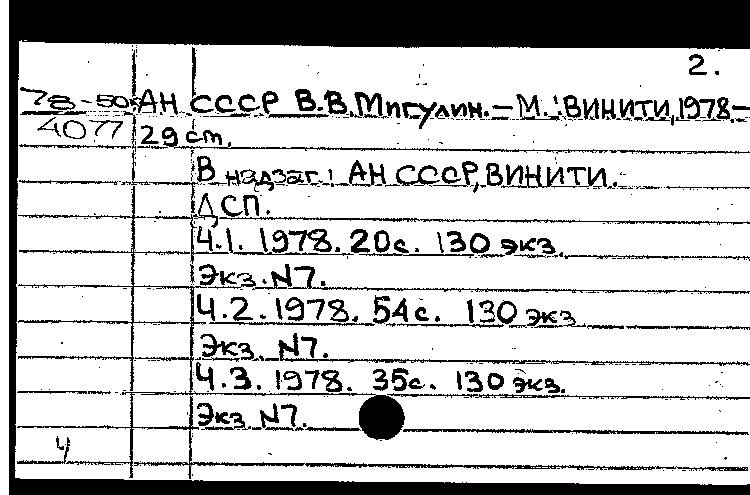 2.
78-50 АН СССР В.В.Мигулин.–М.:ВИНИТИ,1978.–
4077 29 cm.
В надзаг.: АН СССР, ВИНИТИ.–
ДСП.
Ч.1. 1978. 20с. 130 экз.
Экз. N7.
Ч.2. 1978. 54с. 130 экз
Экз. N7.
Ч.3. 1978. 35с. 130 экз.
Экз N7.
4